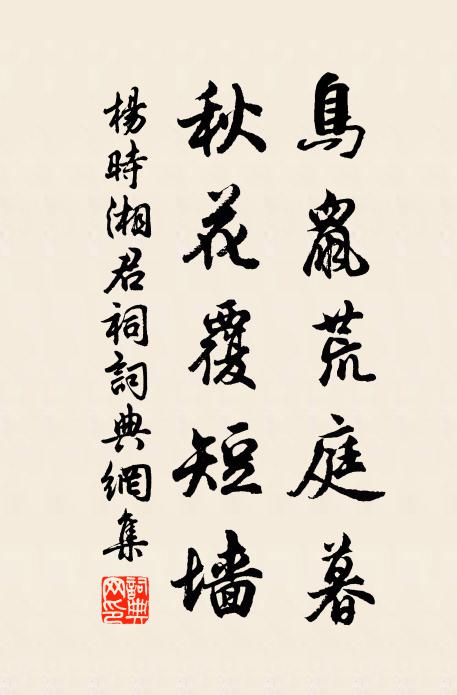 鳥鼠荒庭暮
秋花覆短墻
楊時湘君祠詞典網集
詞典网印